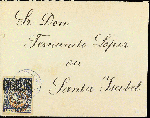 Sr. Don
Fernando López
en
Santa Isabel